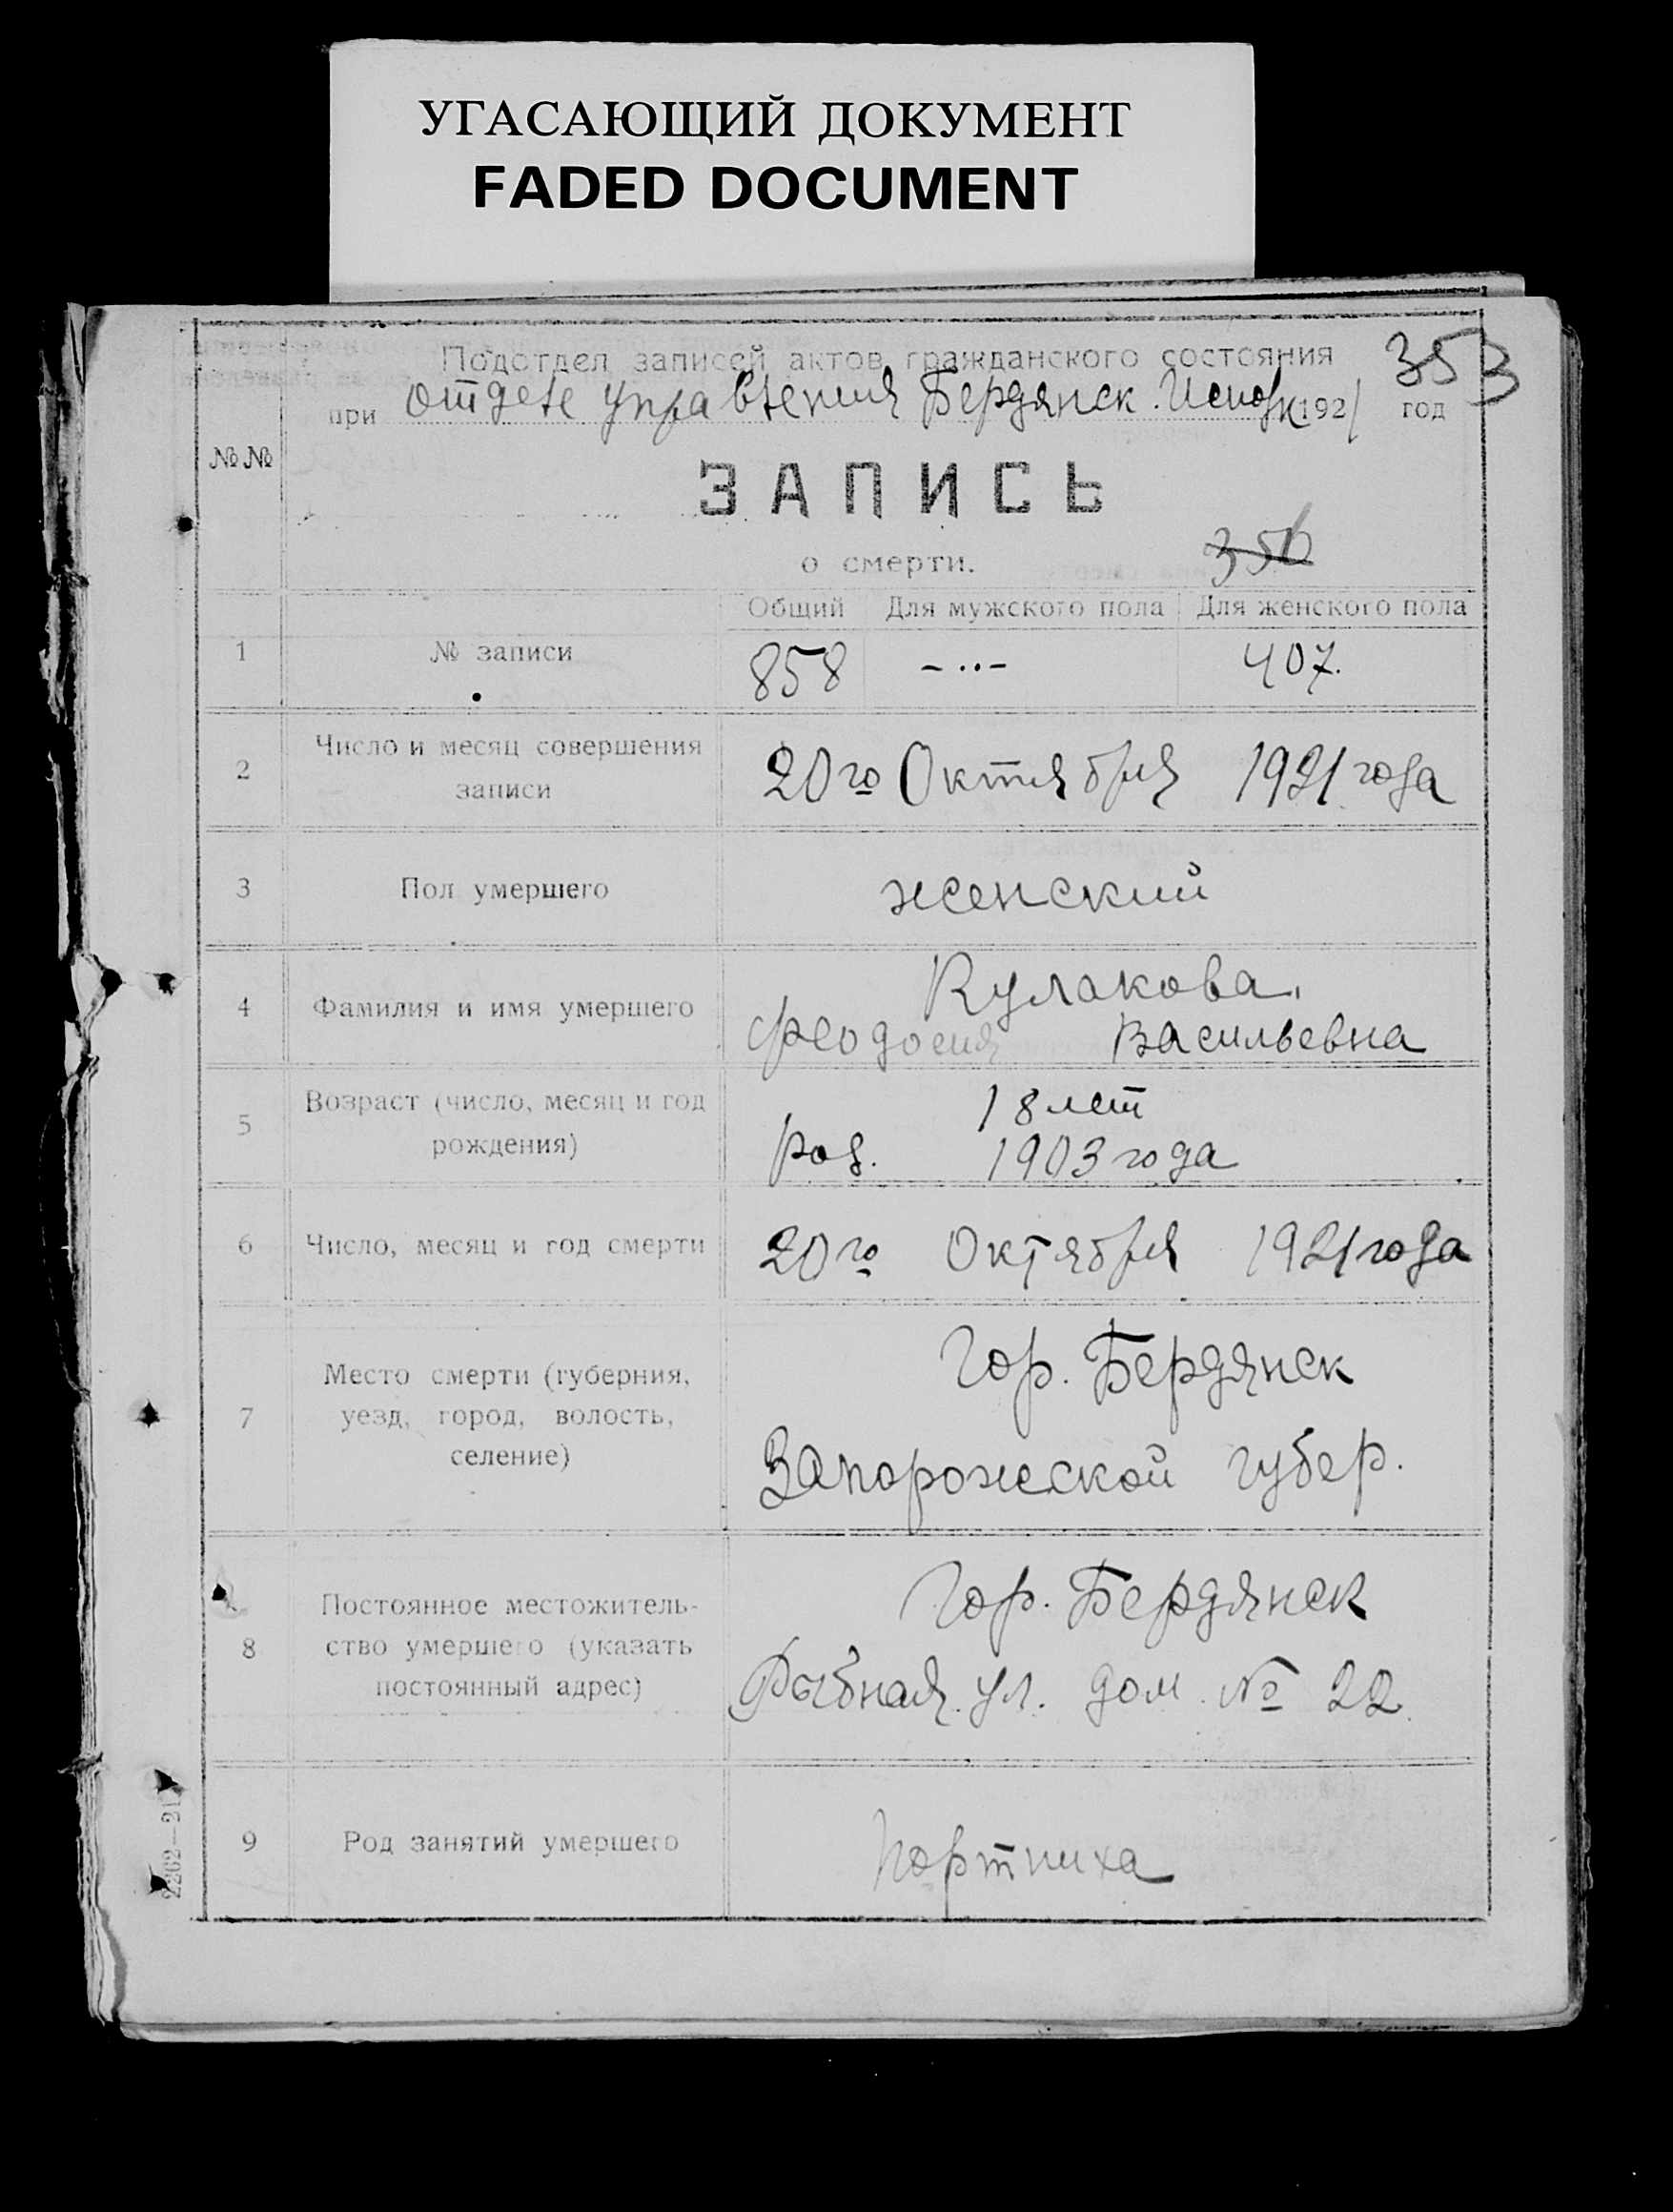 УГАСАЮЩИЙ ДОКУМЕНТ
FADED DOCUMENT
353
Подотдел записей актов гражданского состояния
при отделе управления Бердянск. Исполк 1921 год
№№
ЗАПИСЬ
о смерти.
350
Общий Для мужского пола Для женского пола
1 № записи 858 -··- 407.
2 Число и месяц совершения
записи
20го Октября 1921 года
3 Пол умершего женский
4 Фамилия и имя умершего
Кулакова
Феодосия Васильевна
5 Возраст (число, месяц и год
рождения)
18 лет
род. 1903 года
6 Число, месяц и год смерти 20го Октября 1921 года
7 Место смерти (губерния,
уезд, город, волость,
селение)
Гор. Бердянск
Запорожской губер.
8 Постоянное местожитель-
ство умершего (указать
постоянный адрес)
Гор. Бердянск
Рыбная ул. дом № 22
9 Род занятий умершего Портниха
2262—21